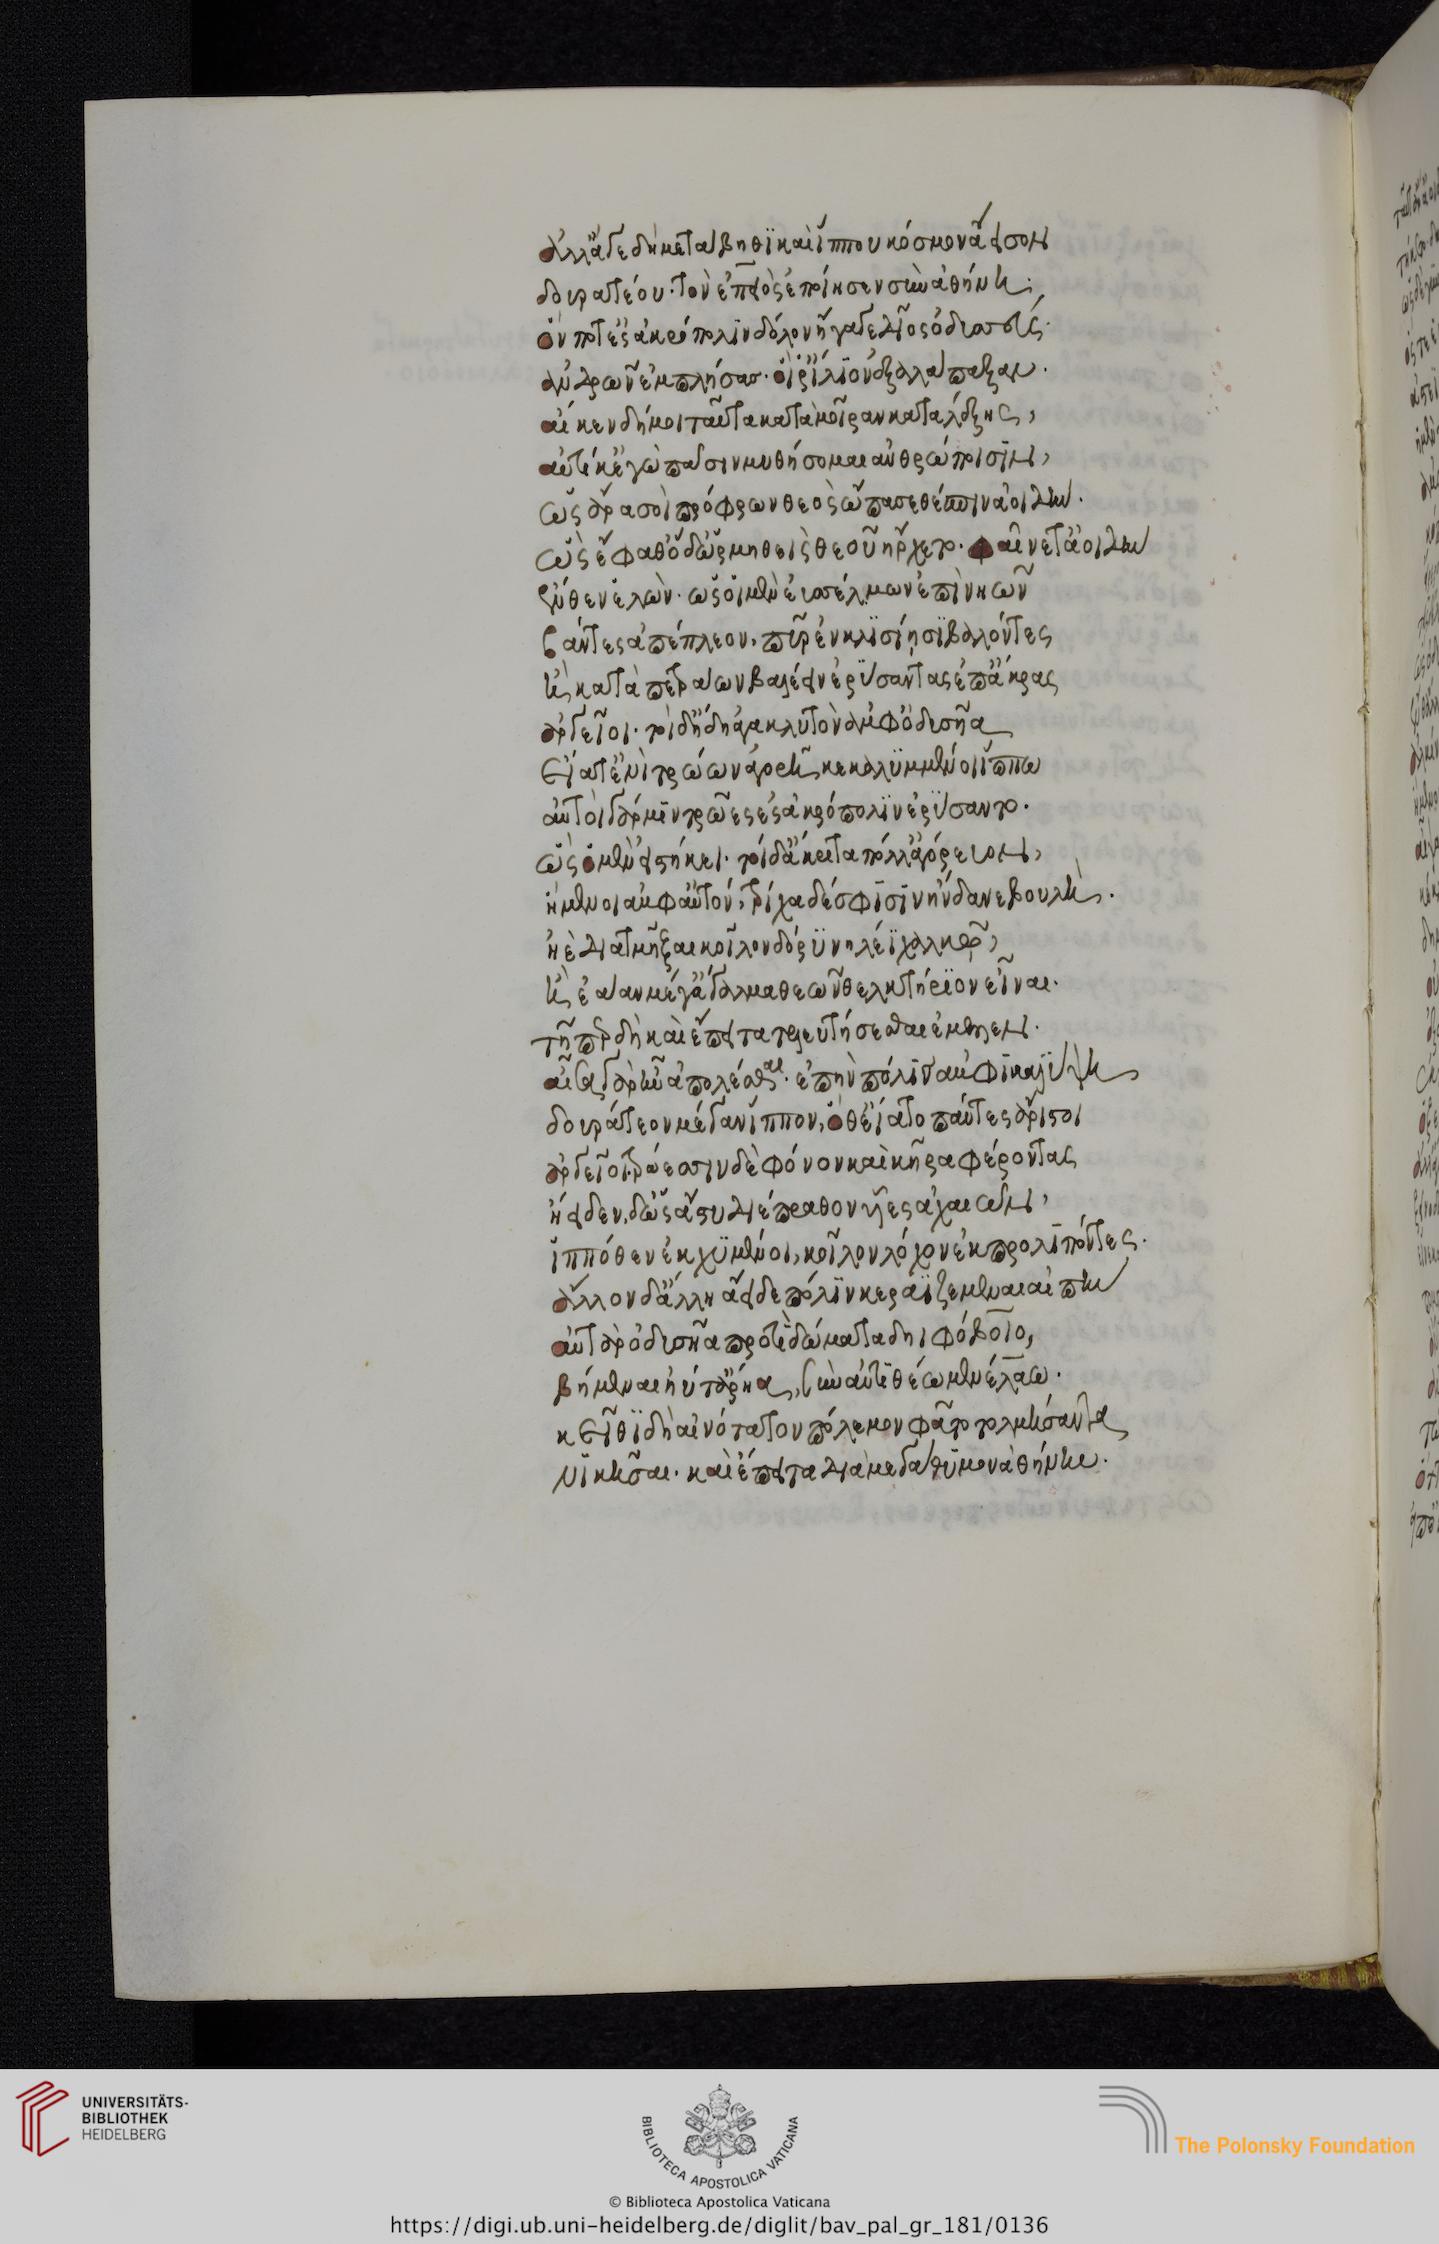 ἀλλ' ἄγε δὴ μετάβηθι καὶ ἵππου κόσμον ἄεισον
δουρατέου· τὸν ἐπειὸς ἐποίησεν σὺν ἀθήνη·
ὅν ποτ' ἐς ἀκρόπολιν δόλον ἤγαγε δῖος ὀδυσσεύς·
ἀνδρῶν ἐμπλήσας· οἵ ῥ' ἴλιον ἐξαλάπαξαν·
αἴ κεν δή μοι ταῦτα κατὰ μοῖραν καταλέξης,
αὐτίκ' ἐγὼ πᾶσιν μυθήσομαι ἀνθρώποισιν,
ὡς ἄρα σοι πρόφρων θεὸς ὤπασε θέσπιν ἀοιδήν·
ὣς ἔφαθ' ὁ δ' ὁρμηθεὶς θεοῦ ἤρχετο· φαῖνε δ' ἀοιδὴν
ἔνθεν ἑλὼν· ὡς οἱ μὲν ἐυσσέλμων ἐπὶ νηῶν
βάντες ἀπέπλεον, πῦρ ἐν κλισίησι βαλόντες
ἀργεῖοι· τοὶ δ' ἤδη ἀγακλυτὸν ἀμφ' ὀδυσῆα
εἵατ' ἐνὶ τρώων ἀγορῆ κεκαλυμμένοι ἵππω
αὐτοὶ γάρ μιν τρῶες ἐς ἀκρόπολιν ἐρύσαντο·
ὣς ὁ μὲν εἱστήκει· τοὶ δ' ἄκριτα πόλλ' ἀγόρευον,
ἥμενοι ἀμφ' αὐτόν, τρίχα δέ σφισιν ἥνδανε βουλὴ·
ἠὲ διατμῆξαι κοῖλον δόρυ νηλέι χαλκῶ,
ἢ ἐάαν μέγ' ἄγαλμα θεῶν θελκτήριον εἶναι·
τῆπερ δὴ καὶ ἔπειτα τελευτήσεσθαι ἔμελλεν·
αἶσα γὰρ ἦν ἀπολέσθαι· ἐπὴν πόλις ἀμφικαλύψη
δουράτεον μέγαν ἵππον, ὅθ' εἵατο πάντες ἄριστοι
ἀργεῖοι τρώεσσιν δὲ φόνον καὶ κῆρα φέροντες
ἤειδεν, δ' ὡς ἄστυ διέπραθον υἷες ἀχαιῶν,
ἱππόθεν ἐκχύμενοι, κοῖλον λόχον ἐκπρολιπόντες·
ἄλλον δ' ἄλλη ἄειδε πόλιν κεραϊζέμεναι αἰπὴν
αὐτὰρ ὀδυσσῆα προτὶ δώματα δηιφόβοιο,
βήμεναι ἠύτ' ἄρηα, σὺν ἀντιθέω μενελάω·
κεῖθι δὴ αἰνότατον πόλεμον φάτο τολμήσαντα
νικῆσαι· καὶ ἔπειτα διὰ μεγάθυμον ἀθήνην·
UNIVERSITÄTS-
BIBLIOTHEK
HEIDELBERG
BIBLIOTECA APOSTOLICA VATICANA
The Polonsky Foundation
© Biblioteca Apostolica Vaticana
https://digi.ub.uni-heidelberg.de/diglit/bav_pal_gr_181/0136